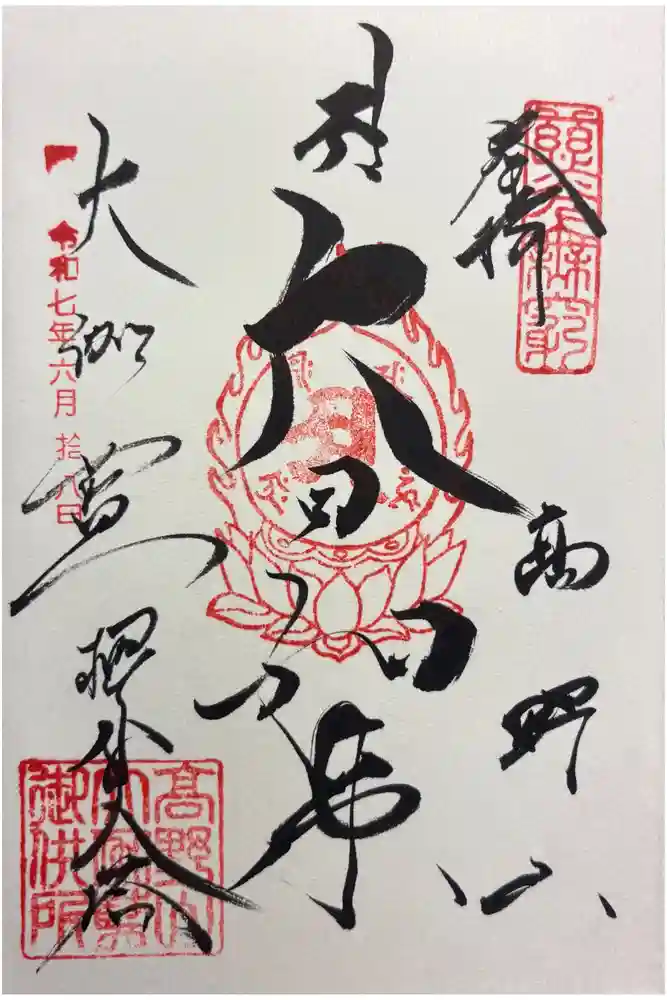 奉拝
高野山
大日如来
大伽藍
根本大塔
令和七年六月拾八日
高野山
大伽藍
御供所